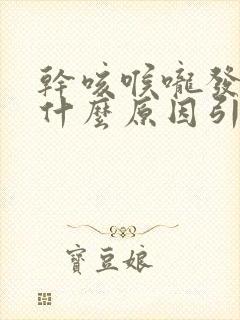 幹咳喉嚨發
什麼原因引
寶豆娘